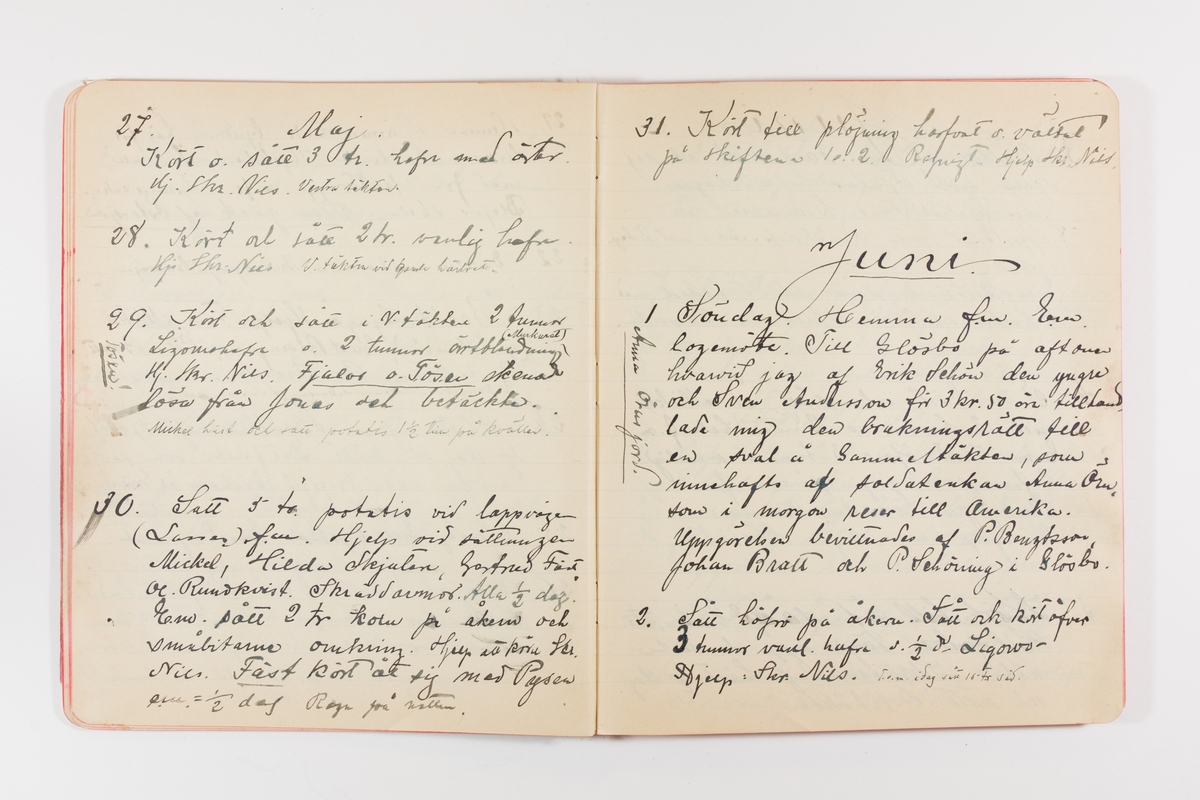 27. Maj.
Kört o. sått 3 tr. hafre med ärter.
Hj. Skr. Nils. Vestra täkten.
28. Kört och sått 2 tr. vanlig hafre.
Hj. Skr. Nils V. täkten vid gamla
29. Kört och sått i V. täkten 2 tunnor
Ligowohafre o. 2 tunnor ärtblandning
Hj. Skr. Nils. Fjalar o. Tösen skenade
lösa från Jonas och betäckte.
Mickel häst och satt potatis 1 1/2 tim på kvällen.
Tösen!
30. Satt 5 tr. potatis vid lappvägen
(Lassas) f.m. Hjelp vid sättningen
Mickel, Hilda Skjutar, Gertrud Fäst
Ol. Rundkvist. Skräddarmor. Alla 1/2 dag.
E.m. sått 2 tr korn på åkern och
småbitarne omkring. Hjelp att köra Skr.
Nils. Fäst kört åt sig med Pysen
e.m. = 1/2 dag Regn på natten.
31. Kört till plöjning harfvat o. vältat
på skiftena 1 o. 2. Regnigt. Hjelp Skr. Nils.
Juni.
1 Söndag. Hemma f.m. E.m.
logemöte. Till Glösbo på aftonen
hvarvid jag af Erik Schön den yngre
och Sven Andersson för 3 kr. 50 öre tillhand-
lade mig den brukningsrätt till
en sval å Gammeltäkten, som
innehafts af soldatenkan Anna Örn,
som i morgon reser till Amerika.
Uppgörelsen bevittnades af P. Bengtsson,
Johan Bratt och P. Schöning i Glösbo.
Anna Örns jord.
2. Sått höfrö på åkern. Sått och kört öfver
3 tunnor vanl. hafre o. 1/2 D:o Ligowo-
Hjelp: Skr. Nils.